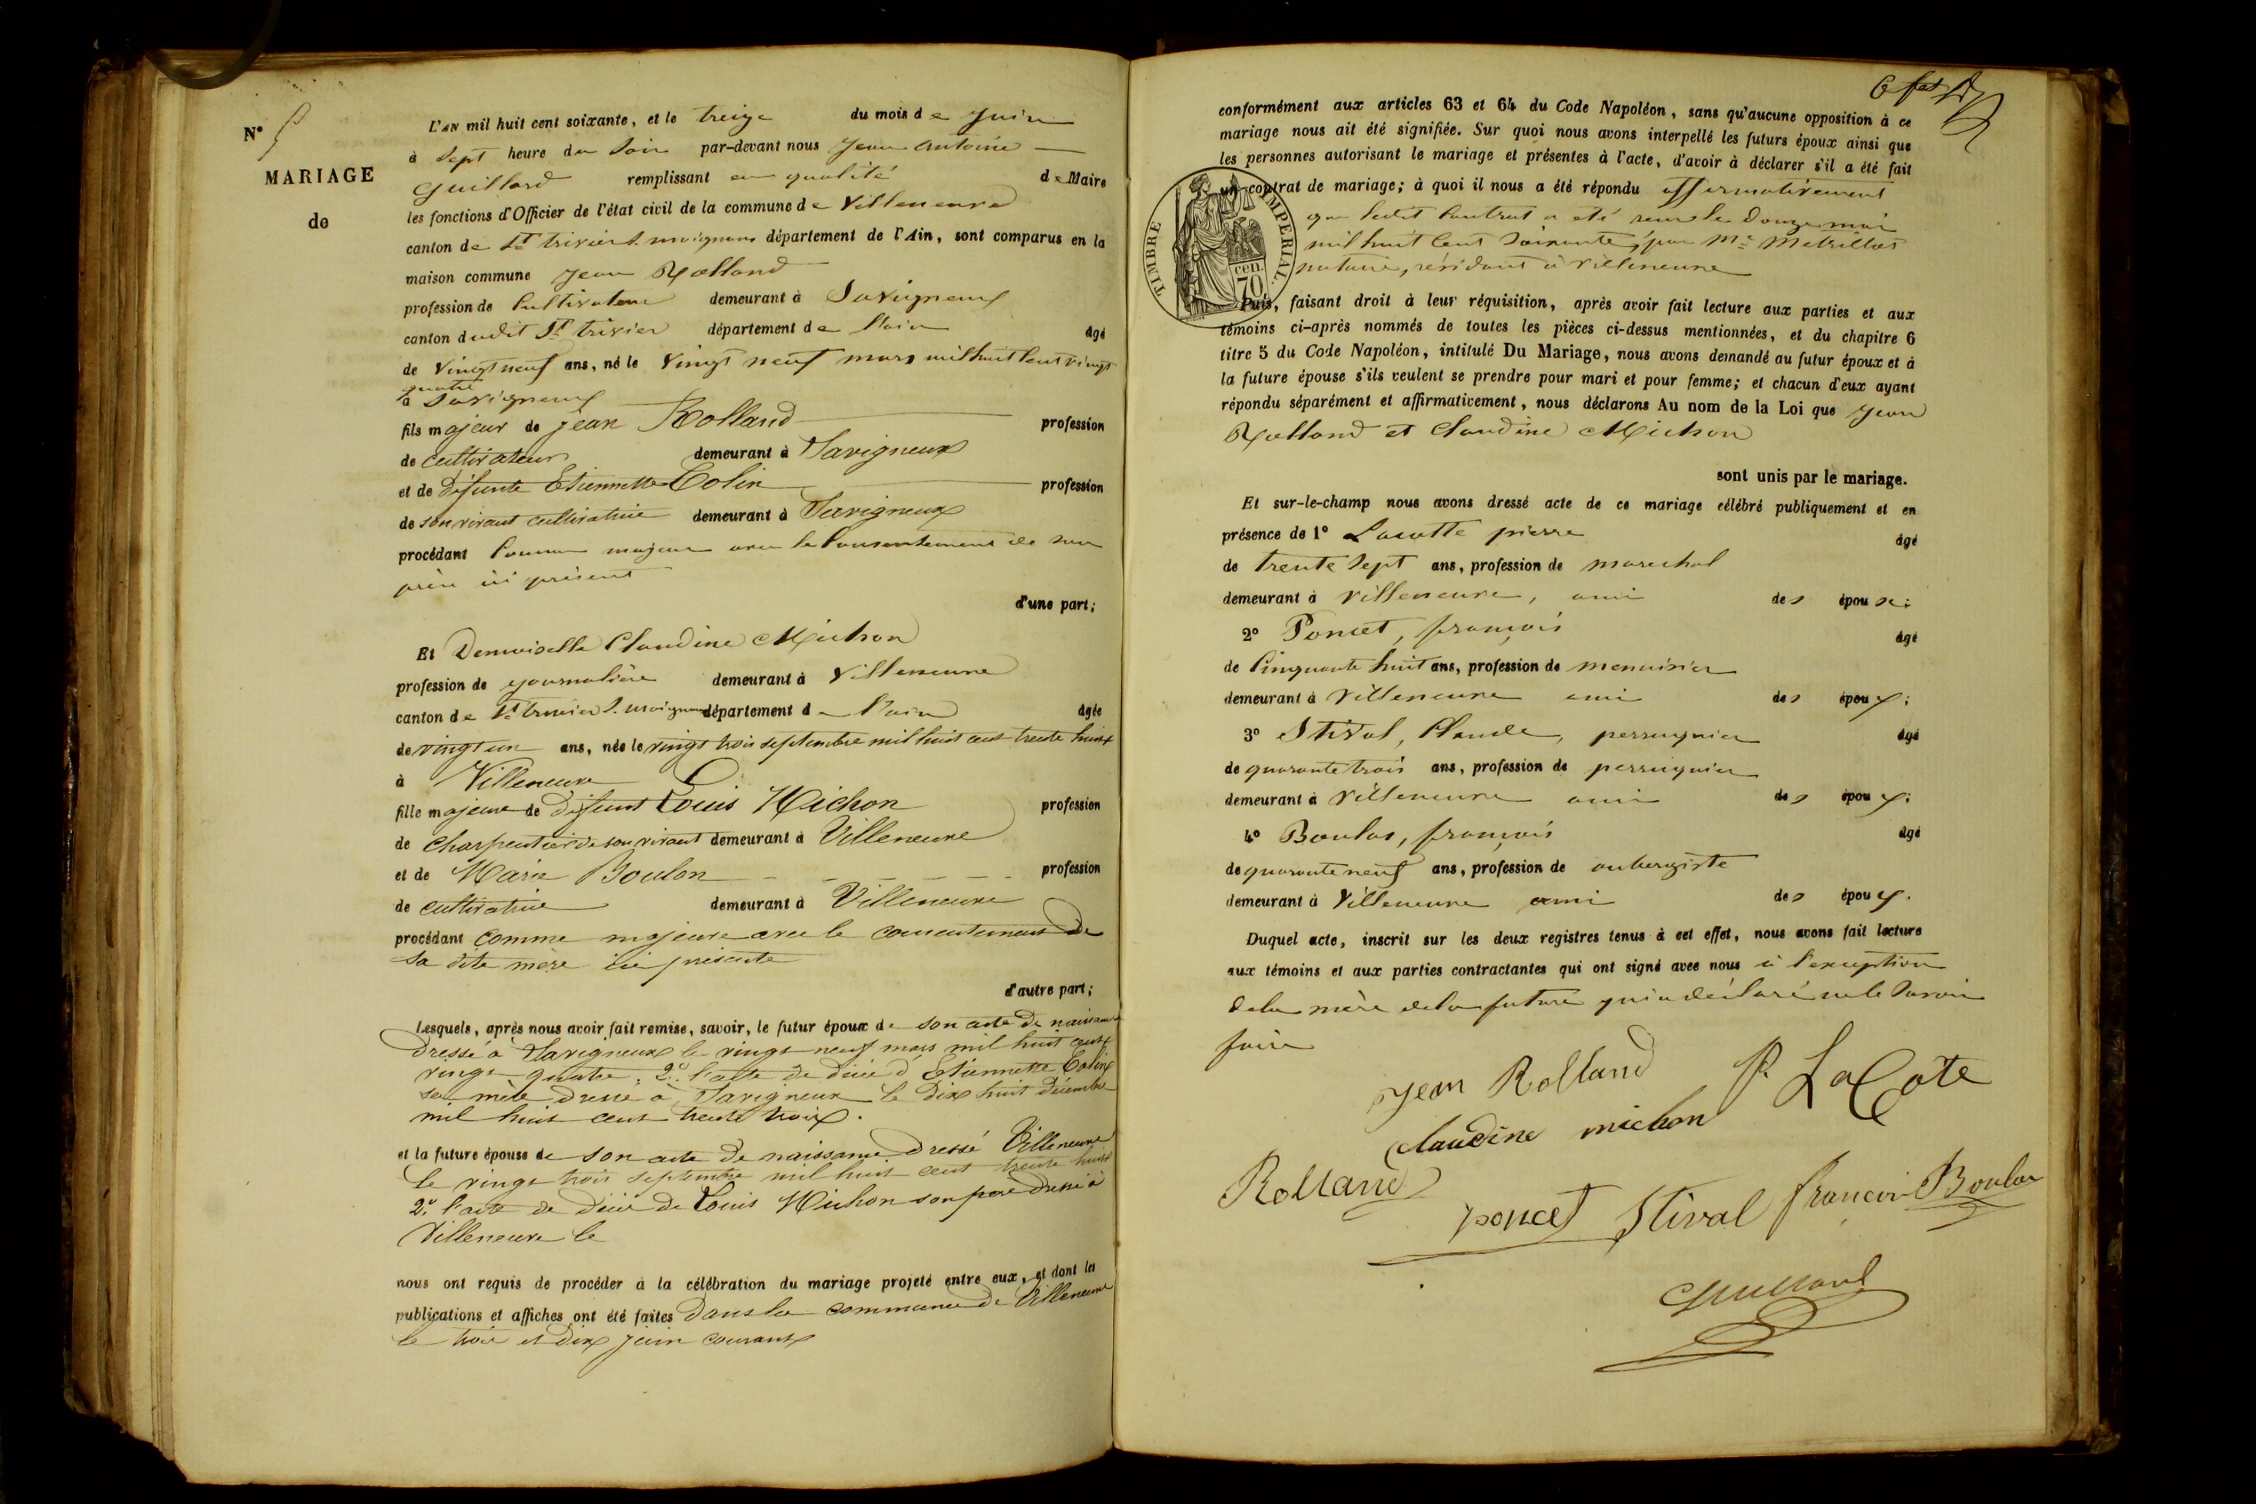 N° 5
MARIAGE
de
L'AN mil huit cent soixante, et le treize du mois de Juin
à sept heure du soir par-devant nous Jean Antoine
Guillard remplissant en qualité de Maire
les fonctions d'Officier de l'état civil de la commune de Villeneuve
canton de St trivier s. moignans département de l'Ain, sont comparus en la
maison commune Jean Rolland
profession de Cultivateur demeurant à Savigneux
canton dudit St trivier département de l'ain âgé
de Vingt neuf ans, né le Vingt neuf mars mil huit Cent vingt
quatre
à Savigneux
fils majeur de Jean Rolland profession
de cultivateur demeurant à Savigneux
et de défunte Etiennette Colin profession
de son vivant cultivatrice demeurant à Savigneux
procédant Comme majeur avec le Consentement de son
père ici présent
d'une part;
Et Demoiselle Claudine Michon
profession de journalière demeurant à Villeneuve
canton de St trivier s. moignans département de l'ain âgée
de vingt un ans, née le vingt trois septembre mil huit cent trente huit
à Villeneuve
fille majeure de défunt Louis Michon profession
de charpentier de son vivant demeurant à Villeneuve
et de Marie Boulon profession
de cultivatrice demeurant à Villeneuve
procédant comme majeure avec le consentement de
sa dite mère ici présente
d'autre part;
Lesquels, après nous avoir fait remise, savoir, le futur époux de son acte de naissance
dressé à Savigneux le vingt neuf mars mil huit cent
vingt quatre, 2° l'acte de décès d'Etiennette Colin
sa mère dressé à Savigneux le dix huit décembre
mil huit cent trente trois.
et la future épouse de son acte de naissance dressé Villeneuve
le vingt trois septembre mil huit cent trente huit
2° l'acte de décès de Louis Michon son père dressé à
Villeneuve le
nous ont requis de procéder à la célébration du mariage projeté entre eux, et dont les
publications et affiches ont été faites dans la commune de Villeneuve
le trois et dix juin courant
6
conformément aux articles 63 et 64 du Code Napoléon, sans qu'aucune opposition à ce
mariage nous ait été signifiée. Sur quoi nous avons interpellé les futurs époux ainsi que
les personnes autorisant le mariage et présentes à l'acte, d'avoir à déclarer s'il a été fait
un contrat de mariage; à quoi il nous a été répondu affirmativement
que ledit Contrat a été reçu le Douze mai
mil huit Cent Soixante, par Me
notaire, résidant à Villeneuve
TIMBRE IMPERIAL
70 cen.
Puis, faisant droit à leur réquisition, après avoir fait lecture aux parties et aux
témoins ci-après nommés de toutes les pièces ci-dessus mentionnées, et du chapitre 6
titre 5 du Code Napoléon, intitulé Du Mariage, nous avons demandé au futur époux et à
la future épouse s'ils veulent se prendre pour mari et pour femme; et chacun d'eux ayant
répondu séparément et affirmativement, nous déclarons Au nom de la Loi que Jean
Rolland et Claudine Michon
sont unis par le mariage.
Et sur-le-champ nous avons dressé acte de ce mariage célébré publiquement et en
présence de 1° Lacotte pierre âgé
de trente sept ans, profession de marechal
demeurant à Villeneuve, ami des époux;
2° Poncet, françois âgé
de Cinquante huit ans, profession de menuisier
demeurant à Villeneuve ami des époux;
3° Stival, Claude, perruquier âgé
de quarante trois ans, profession de perruquier
demeurant à Villeneuve ami des époux;
4° Boulas, françois âgé
de quarante neuf ans, profession de aubergiste
demeurant à Villeneuve ami des époux.
Duquel acte, inscrit sur les deux registres tenus à cet effet, nous avons fait lecture
aux témoins et aux parties contractantes qui ont signé avec nous à l'exception
de la mère de la future qui a déclaré ne le savoir
faire
Jean Rolland P. LaCote
claudine michon
Rolland
poncet Stival francoi Boulas
Guillard